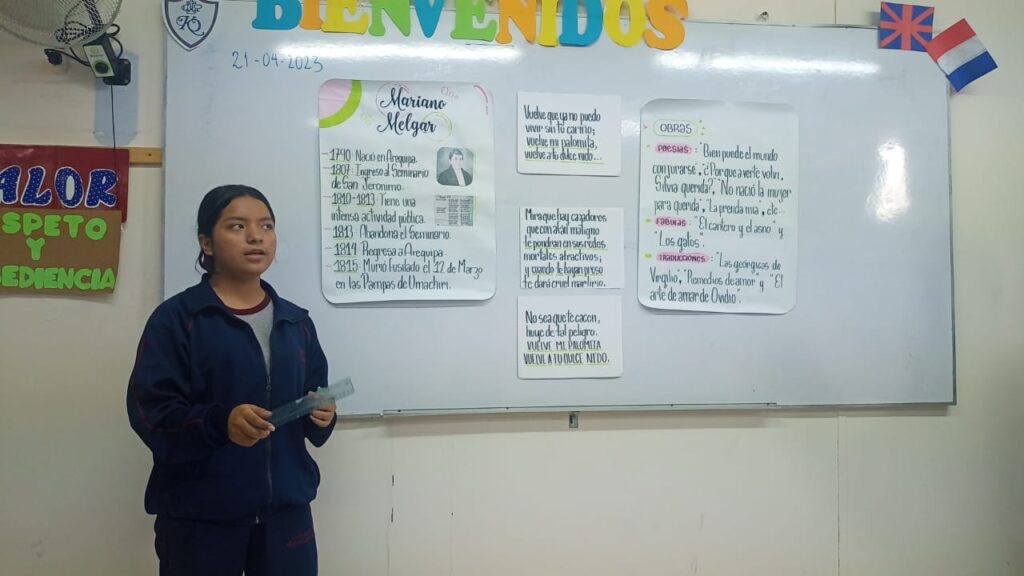 BIENVENIDOS
21-04-2023
ALOR
SPETO
Y
BEDIENCIA
Mariano
Melgar
1790: Nació en Arequipa.
1807: Ingreso al Seminario
de San Jeronimo.
1810-1813: Tiene una
intensa actividad pública.
1813: Abandona el Seminario.
1814: Regresa a Arequipa
1815: Murió fusilado el 12 de Marzo
en las Pampas de Umachiri.
Vuelve que ya no puedo
vivir sin tu cariño;
vuelve mi palomita,
vuelve a tu dulce nido...
Mira que hay cazadores
que con afán maligno
te pondran en sus redes
mortales atractivos;
y cuando te hayan preso
te dará cruel martirio.
No sea que te cacen,
huye de tal peligro.
VUELVE MI PALOMITA
VUELVE A TU DULCE NIDO.
OBRAS
Poesías: "Bien puede el mundo
conjurarse", "¿Por que a verte volvi,
Silvia querida?", "No nació la mujer
para querida", "La prenda mia", etc...
Fabulas: "El cantero y el asno" y
"Los gatos".
Traducciones: "Las geórgicas de
Virgilio", "Remedios de amor" y "El
arte de amar de Ovidio".